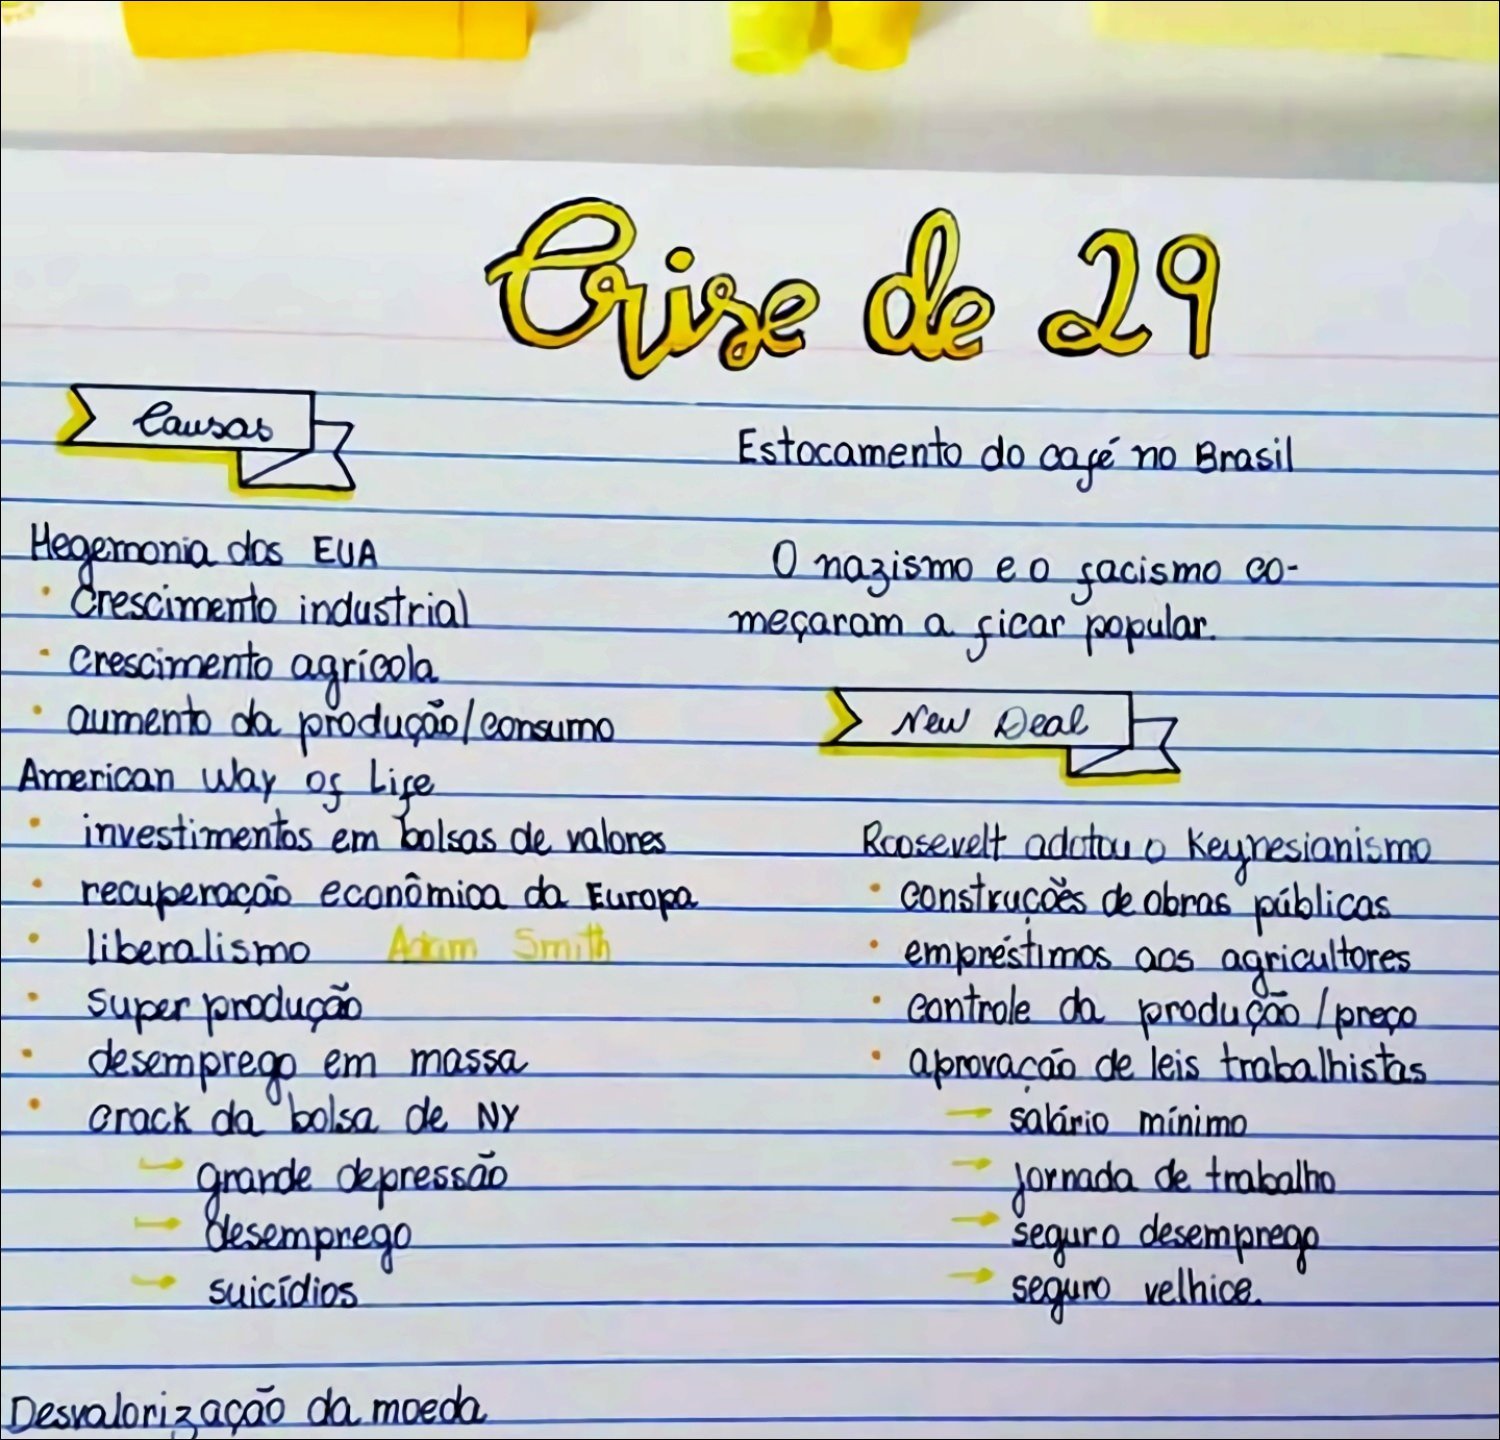 Crise de 29
Causas
Hegemonia dos EUA
• Crescimento industrial
• crescimento agrícola
• aumento da produção/consumo
American Way of Life
• investimentos em bolsas de valores
• recuperação econômica da Europa
• liberalismo Adam Smith
• super produção
• desemprego em massa
• crack da bolsa de NY
→ grande depressão
→ desemprego
→ suicídios
Desvalorização da moeda
Estocamento do café no Brasil
O nazismo e o facismo co-
meçaram a ficar popular.
New Deal
Roosevelt adotou o Keynesianismo
• construções de obras públicas
• empréstimos aos agricultores
• controle da produção/preço
• aprovação de leis trabalhistas
→ salário mínimo
→ jornada de trabalho
→ seguro desemprego
→ seguro velhice.